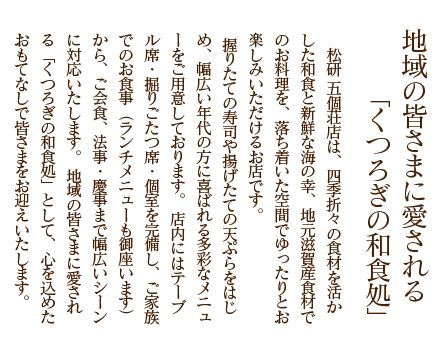 地域の皆さまに愛される
「くつろぎの和食処」
松研 五個荘店は、四季折々の食材を活か
した和食と新鮮な海の幸、地元滋賀産食材で
のお料理を、落ち着いた空間でゆったりとお
楽しみいただけるお店です。
握りたての寿司や揚げたての天ぷらをはじ
め、幅広い年代の方に喜ばれる多彩なメニュ
ーをご用意しております。店内にはテーブ
ル席・掘りごたつ席・個室を完備し、ご家族
でのお食事（ランチメニューも御座います）
から、ご会食、法事・慶事まで幅広いシーン
に対応いたします。地域の皆さまに愛され
る「くつろぎの和食処」として、心を込めた
おもてなしで皆さまをお迎えいたします。